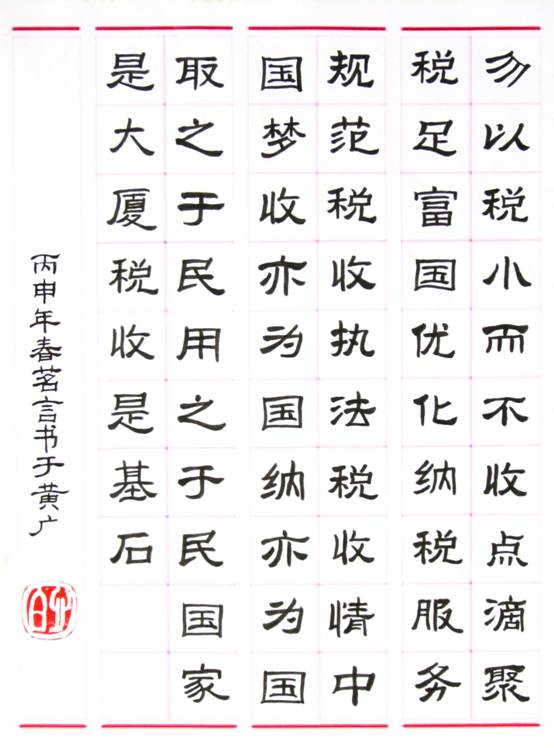 勿以税小而不收点滴聚
税足富国优化纳税服务
规范税收执法税收情中
国梦收亦为国纳亦为国
取之于民用之于民国家
是大厦税收是基石
丙申年春茗言书于黄广